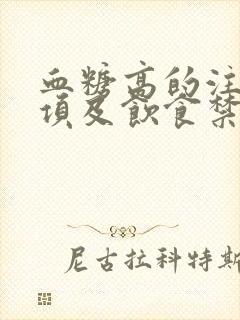 血糖高的注
项及饮食禁
尼古拉科特斯